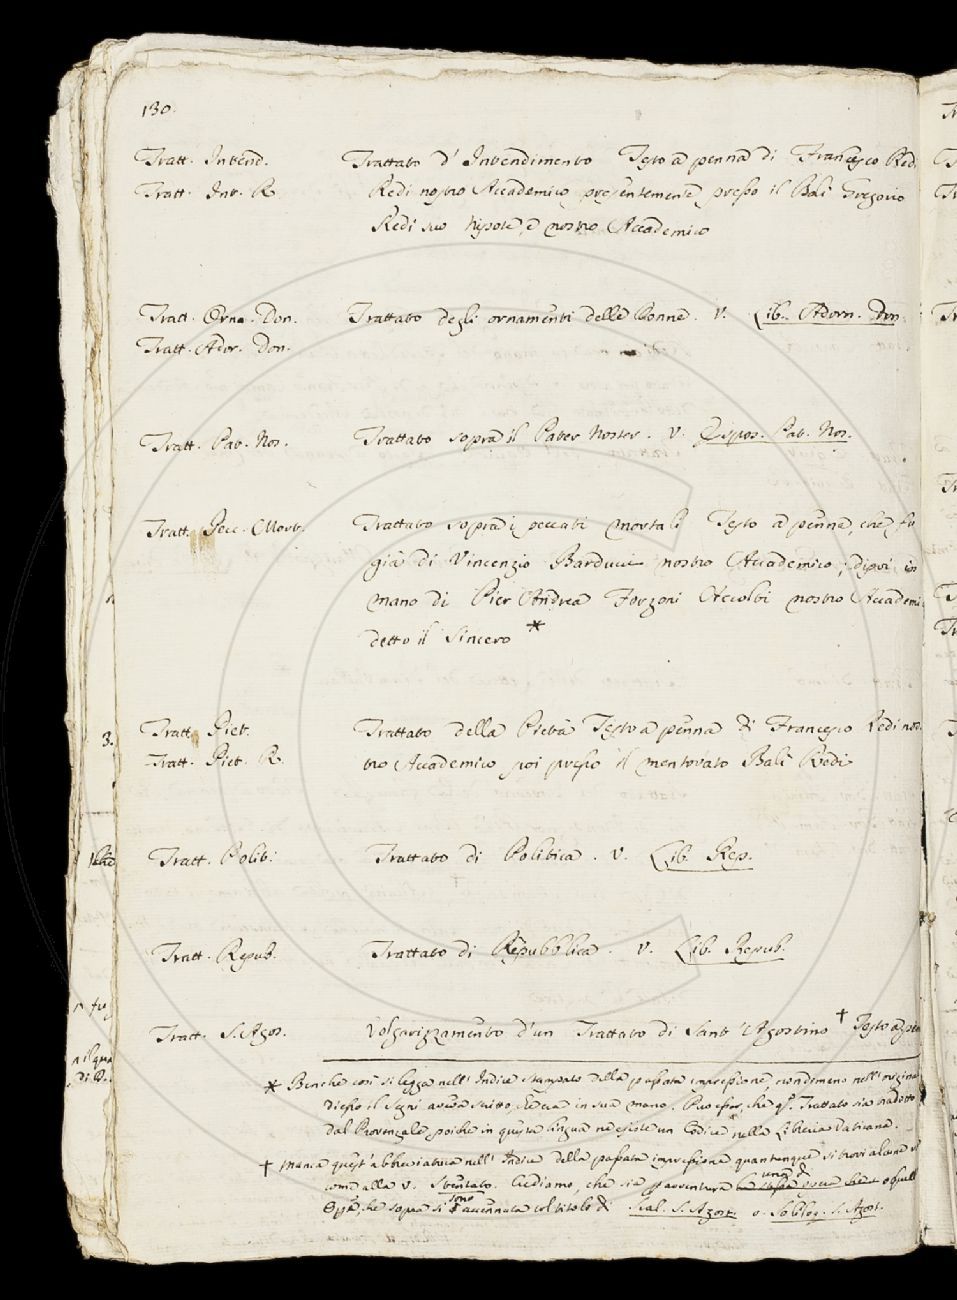 130.
Tratt. Intend. Trattato d' Intendimento Testo a penna di Francesco Redi
Tratt. Int. R. Redi nostro Accademico presentemente presso il Balì Gregorio
Redi suo Nipote, e nostro Accademico
Tratt. Orna. Don. Trattato degli ornamenti delle Donne. V. Lib. Adorn. Don.
Tratt. Ador. Don.
Tratt. Pat. Nos. Trattato sopra il Pater Noster. V. Espos. Pat. Nos.
Tratt. Pecc. Mort. Trattato sopra i peccati mortali Testo a penna, che fu
già di Vincenzio Barducci nostro Accademico; dipoi in
mano di Pier Andrea Forzoni Accolti nostro Accademi
detto il Sincero *
Tratt. Piet. Trattato della Pietà Testo a penna di Francesco Redi nos
Tratt. Piet. R. tro Accademico poi presso il mentovato Balì Redi
Tratt. Polit. Trattato di Politica. V. Lib. Rep.
Tratt. Repub. Trattato di Repubblica. V. Lib. Repub.
Tratt. S. Agos. Volgarizzamento d'un Trattato di Sant' Agostino † Testo a pen
* Benche così si legga nell' Indice stampato della passata impressione, nondimeno nell' origina
il Segni aveva scritto, in sua mano. Può esser, che q.o Trattato sia tradotto
dal Provenzale, poichè in questa lingua ne esiste un Codice nella Libreria Vaticana.
† Manca quest' abbreviatura nell' Indice della passata impressione quantunque si trovi alcuna v
come alla V. Stentato. Crediamo, che sia per avventura una di quell
Opp., che sopra si sono accennate col titolo di Scal. S. Agost. o Soliloq. S. Agost.